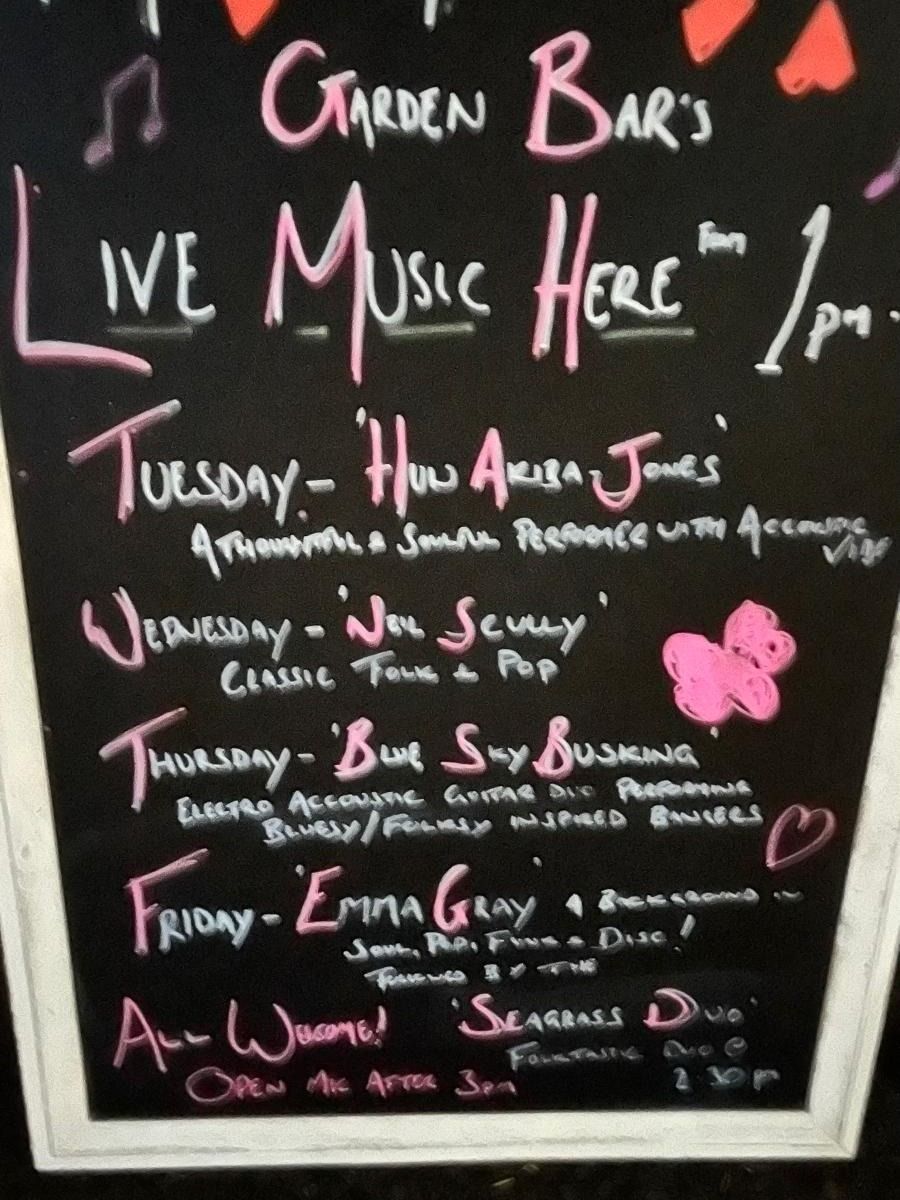 GARDEN BAR'S
LIVE MUSIC HERE FROM 1pm.
TUESDAY - 'HUW AKIBA-JONES'
A THOUGHTFUL & SOULFUL PERFORMER WITH ACCOUSTIC
VIBE
WEDNESDAY - 'NEIL SCULLY'
CLASSIC FOLK & POP
THURSDAY - 'BLUE SKY BUSKING'
ELECTRO ACCOUSTIC GUITAR DUO PERFORMING
BLUESY/FOLKSY INSPIRED BANGERS
FRIDAY - 'EMMA GRAY' A BACKGROUND IN
SOUL, POP, FUNK & DISCO!
FOLLOWED BY THE
ALL WELCOME! 'SEAGRASS DUO'
FOLKTASTIC DUO @
OPEN MIC AFTER 3pm 2:30pm